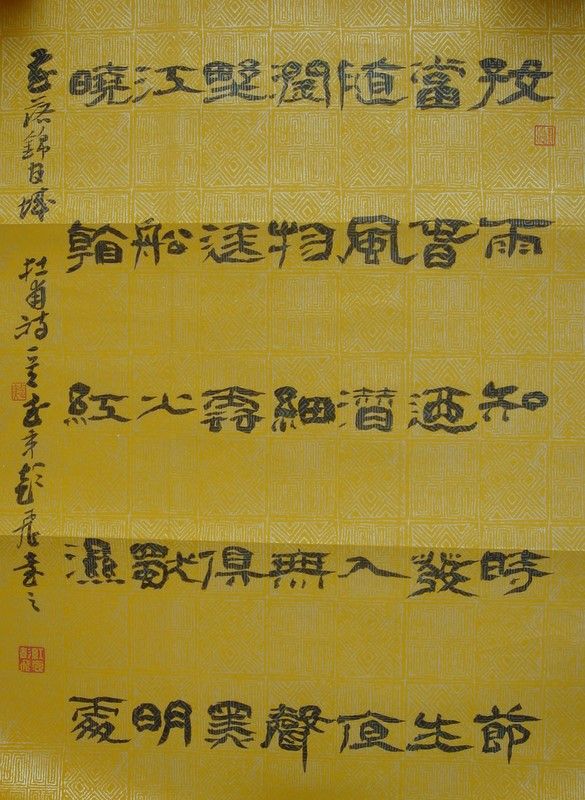 好雨知時節
當春迺發生
隨風潛入夜
潤物細無聲
野逕雲俱黑
江船火獨明
曉看紅濕處
花落錦官城 杜甫詩一首